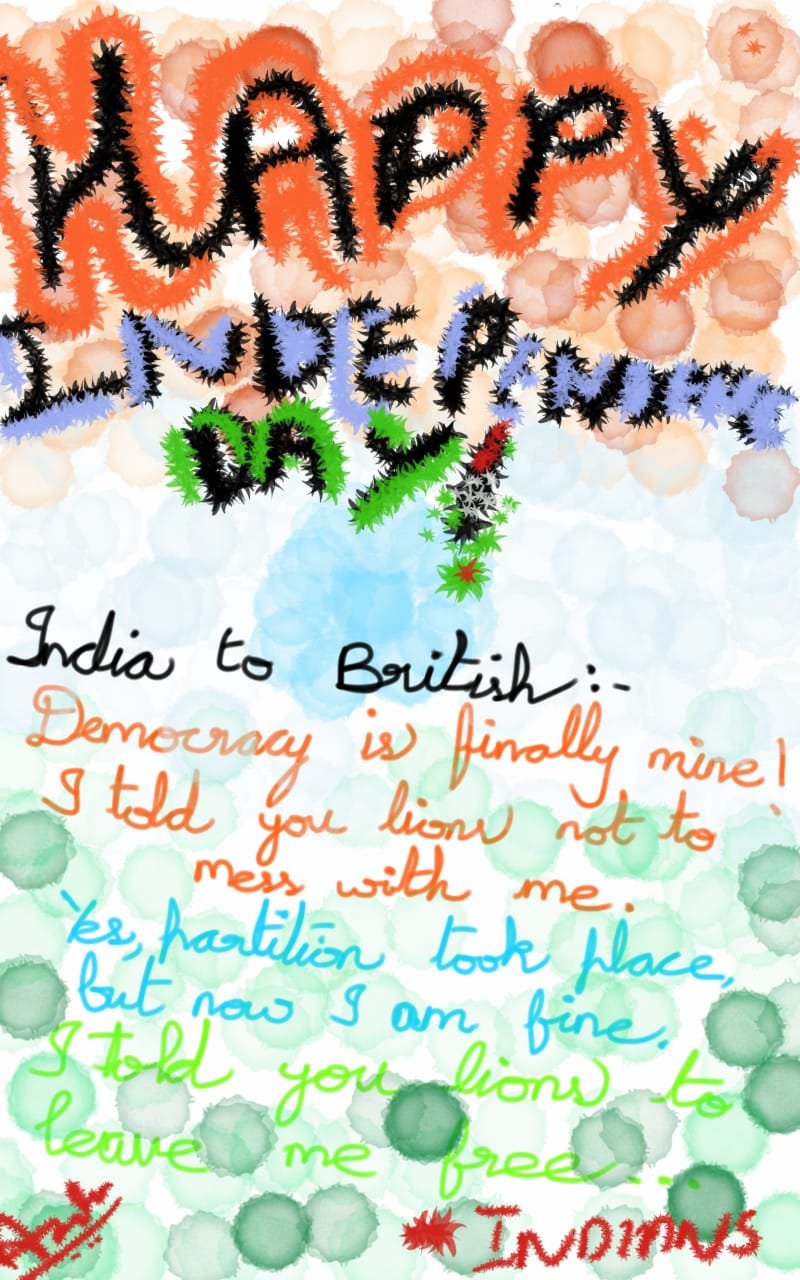 HAPPY
INDEPENDENCE
DAY!
India to British:-
Democracy is finally mine!
I told you lions not to
mess with me.
Yes, partition took place,
but now I am fine.
I told you lions to
leave me free...
INDIANS